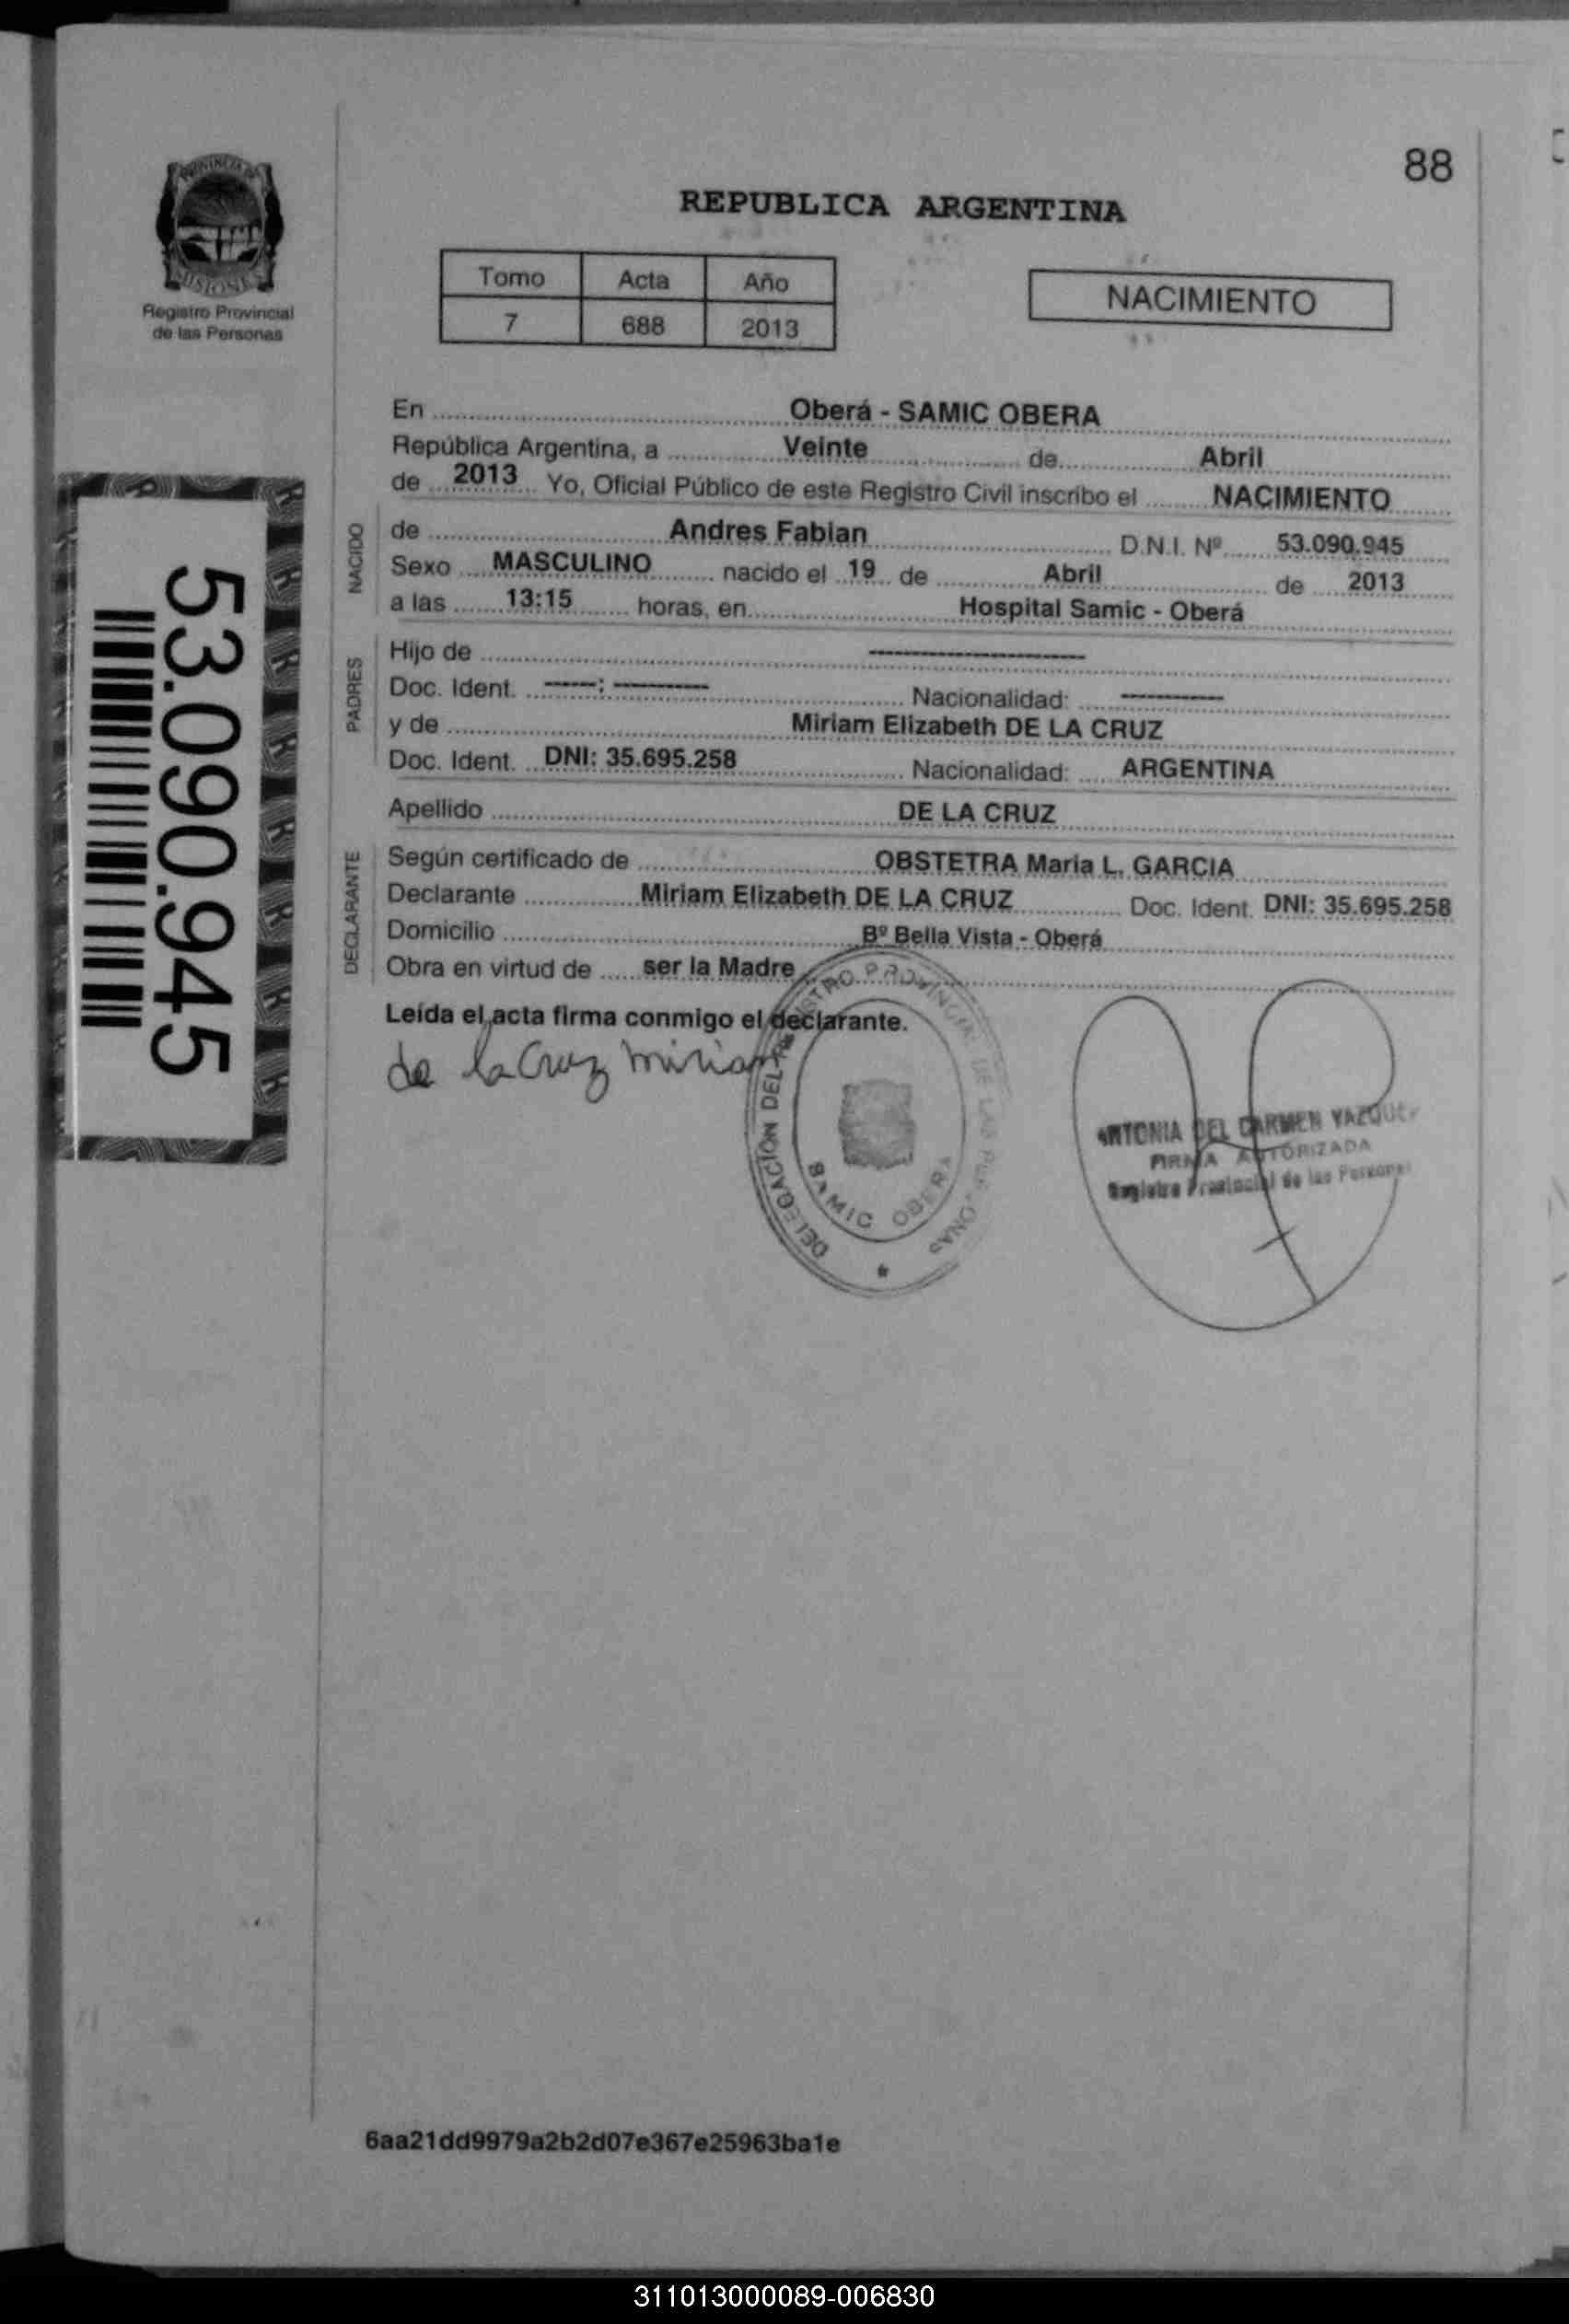 88
PROVINCIA DE
MISIONES
Registro Provincial
de las Personas
REPUBLICA ARGENTINA
Tomo Acta Año
7 688 2013
NACIMIENTO
En Oberá - SAMIC OBERA
República Argentina, a Veinte de Abril
de 2013 Yo, Oficial Público de este Registro Civil inscribo el NACIMIENTO
NACIDO
de Andres Fabian D.N.I. Nº 53.090.945
Sexo MASCULINO nacido el 19 de Abril de 2013
a las 13:15 horas, en Hospital Samic - Oberá
PADRES
Hijo de --------------------
Doc. Ident. -----: --------- Nacionalidad: ----------
y de Miriam Elizabeth DE LA CRUZ
Doc. Ident. DNI: 35.695.258 Nacionalidad: ARGENTINA
Apellido DE LA CRUZ
DECLARANTE
Según certificado de OBSTETRA Maria L. GARCIA
Declarante Miriam Elizabeth DE LA CRUZ Doc. Ident. DNI: 35.695.258
Domicilio Bº Bella Vista - Oberá
Obra en virtud de ser la Madre
Leída el acta firma conmigo el declarante.
de la Cruz Miriam
DELEGACIÓN DEL REGISTRO PROVINCIAL DE LAS PERSONAS
SAMIC OBERA
ANTONIA DEL CARMEN VAZQUEZ
FIRMA AUTORIZADA
Registro Provincial de las Personas
53.090.945
6aa21dd9979a2b2d07e367e25963ba1e
311013000089-006830